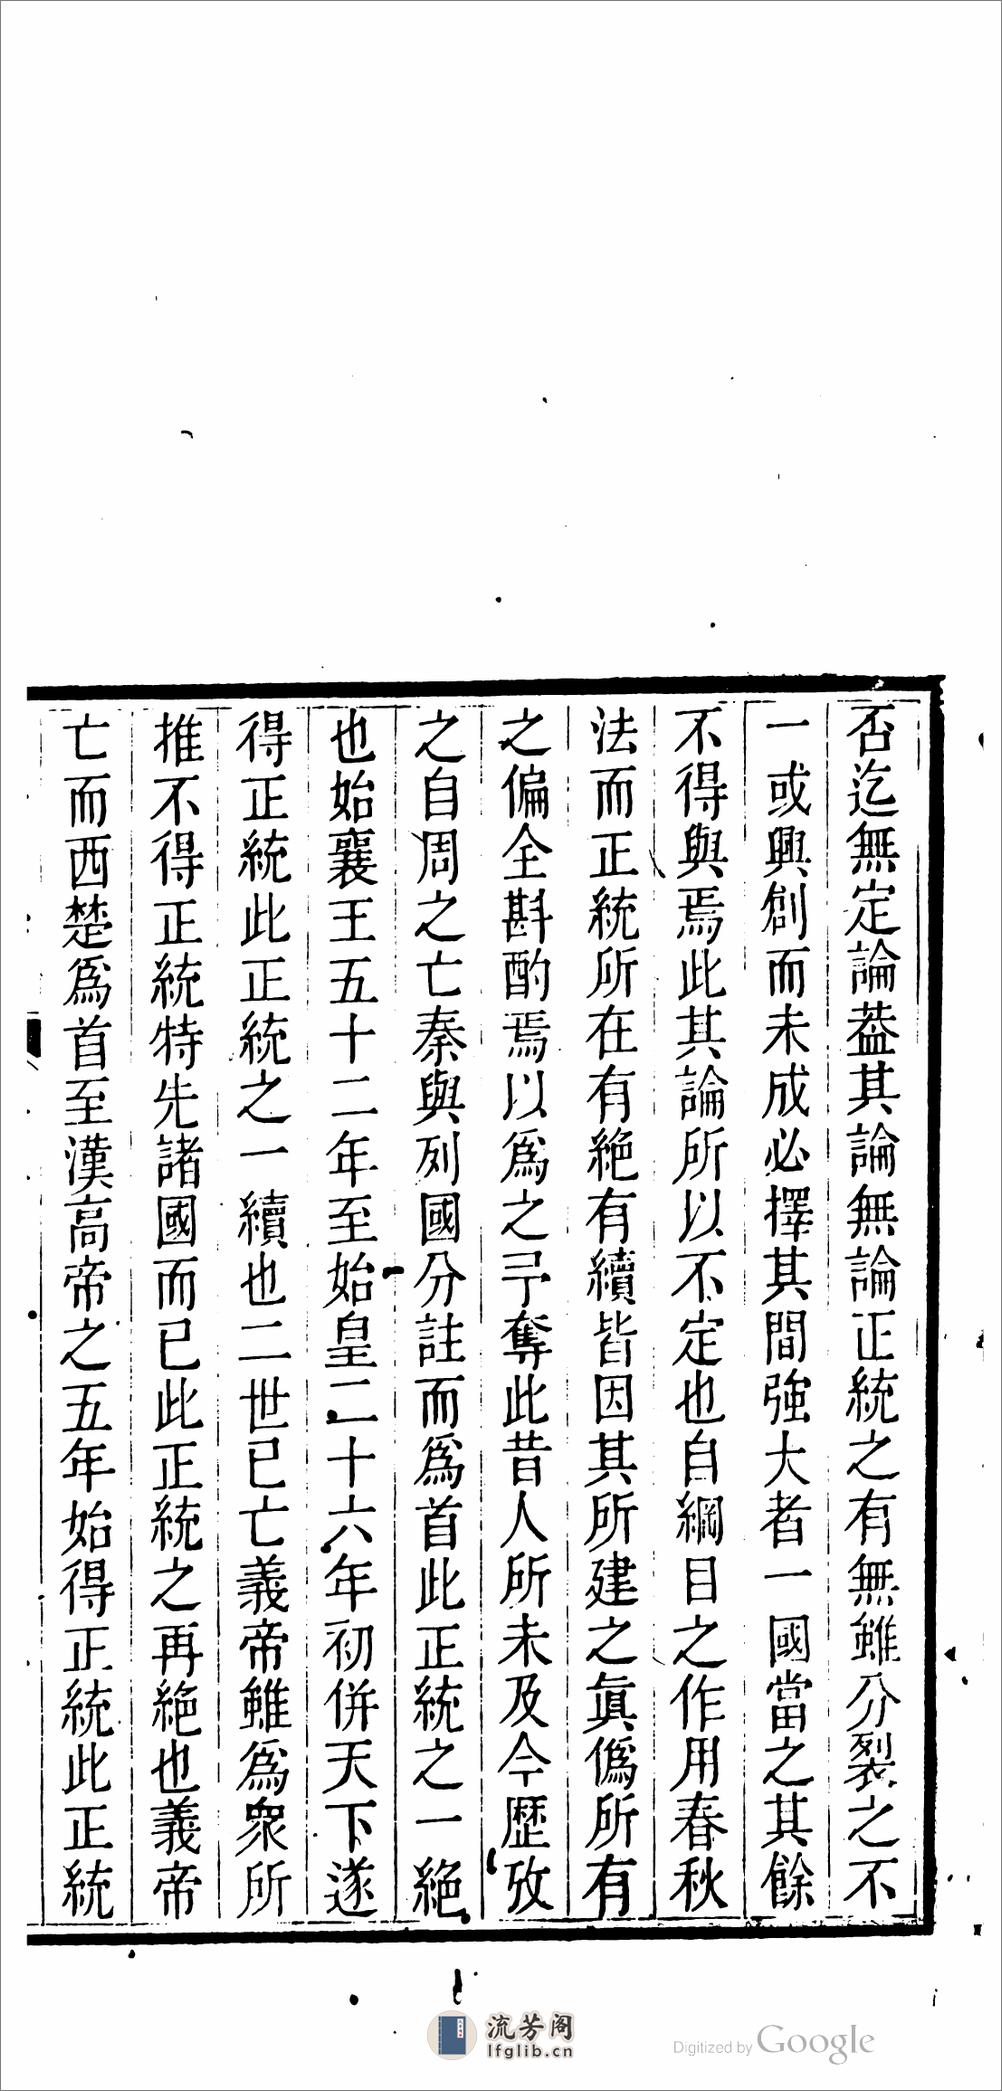 否迄無定論葢其論無論正統之有無雖分裂之不
一或興創而未成必擇其間強大者一國當之其餘
不得與焉此其論所以不定也自綱目之作用春秋
法而正統所在有絶有續皆因其所建之眞僞所有
之偏全斟酌焉以爲之予奪此昔人所未及今歴攷
之自周之亡秦與列國分註而爲首此正統之一絶
也始襄王五十二年至始皇二十六年初併天下遂
得正統此正統之一續也二世已亡義帝雖爲衆所
推不得正統特先諸國而已此正統之再絶也義帝
亡而西楚爲首至漢高帝之五年始得正統此正統
流芳阁
lfglib.cn
Digitized by Google